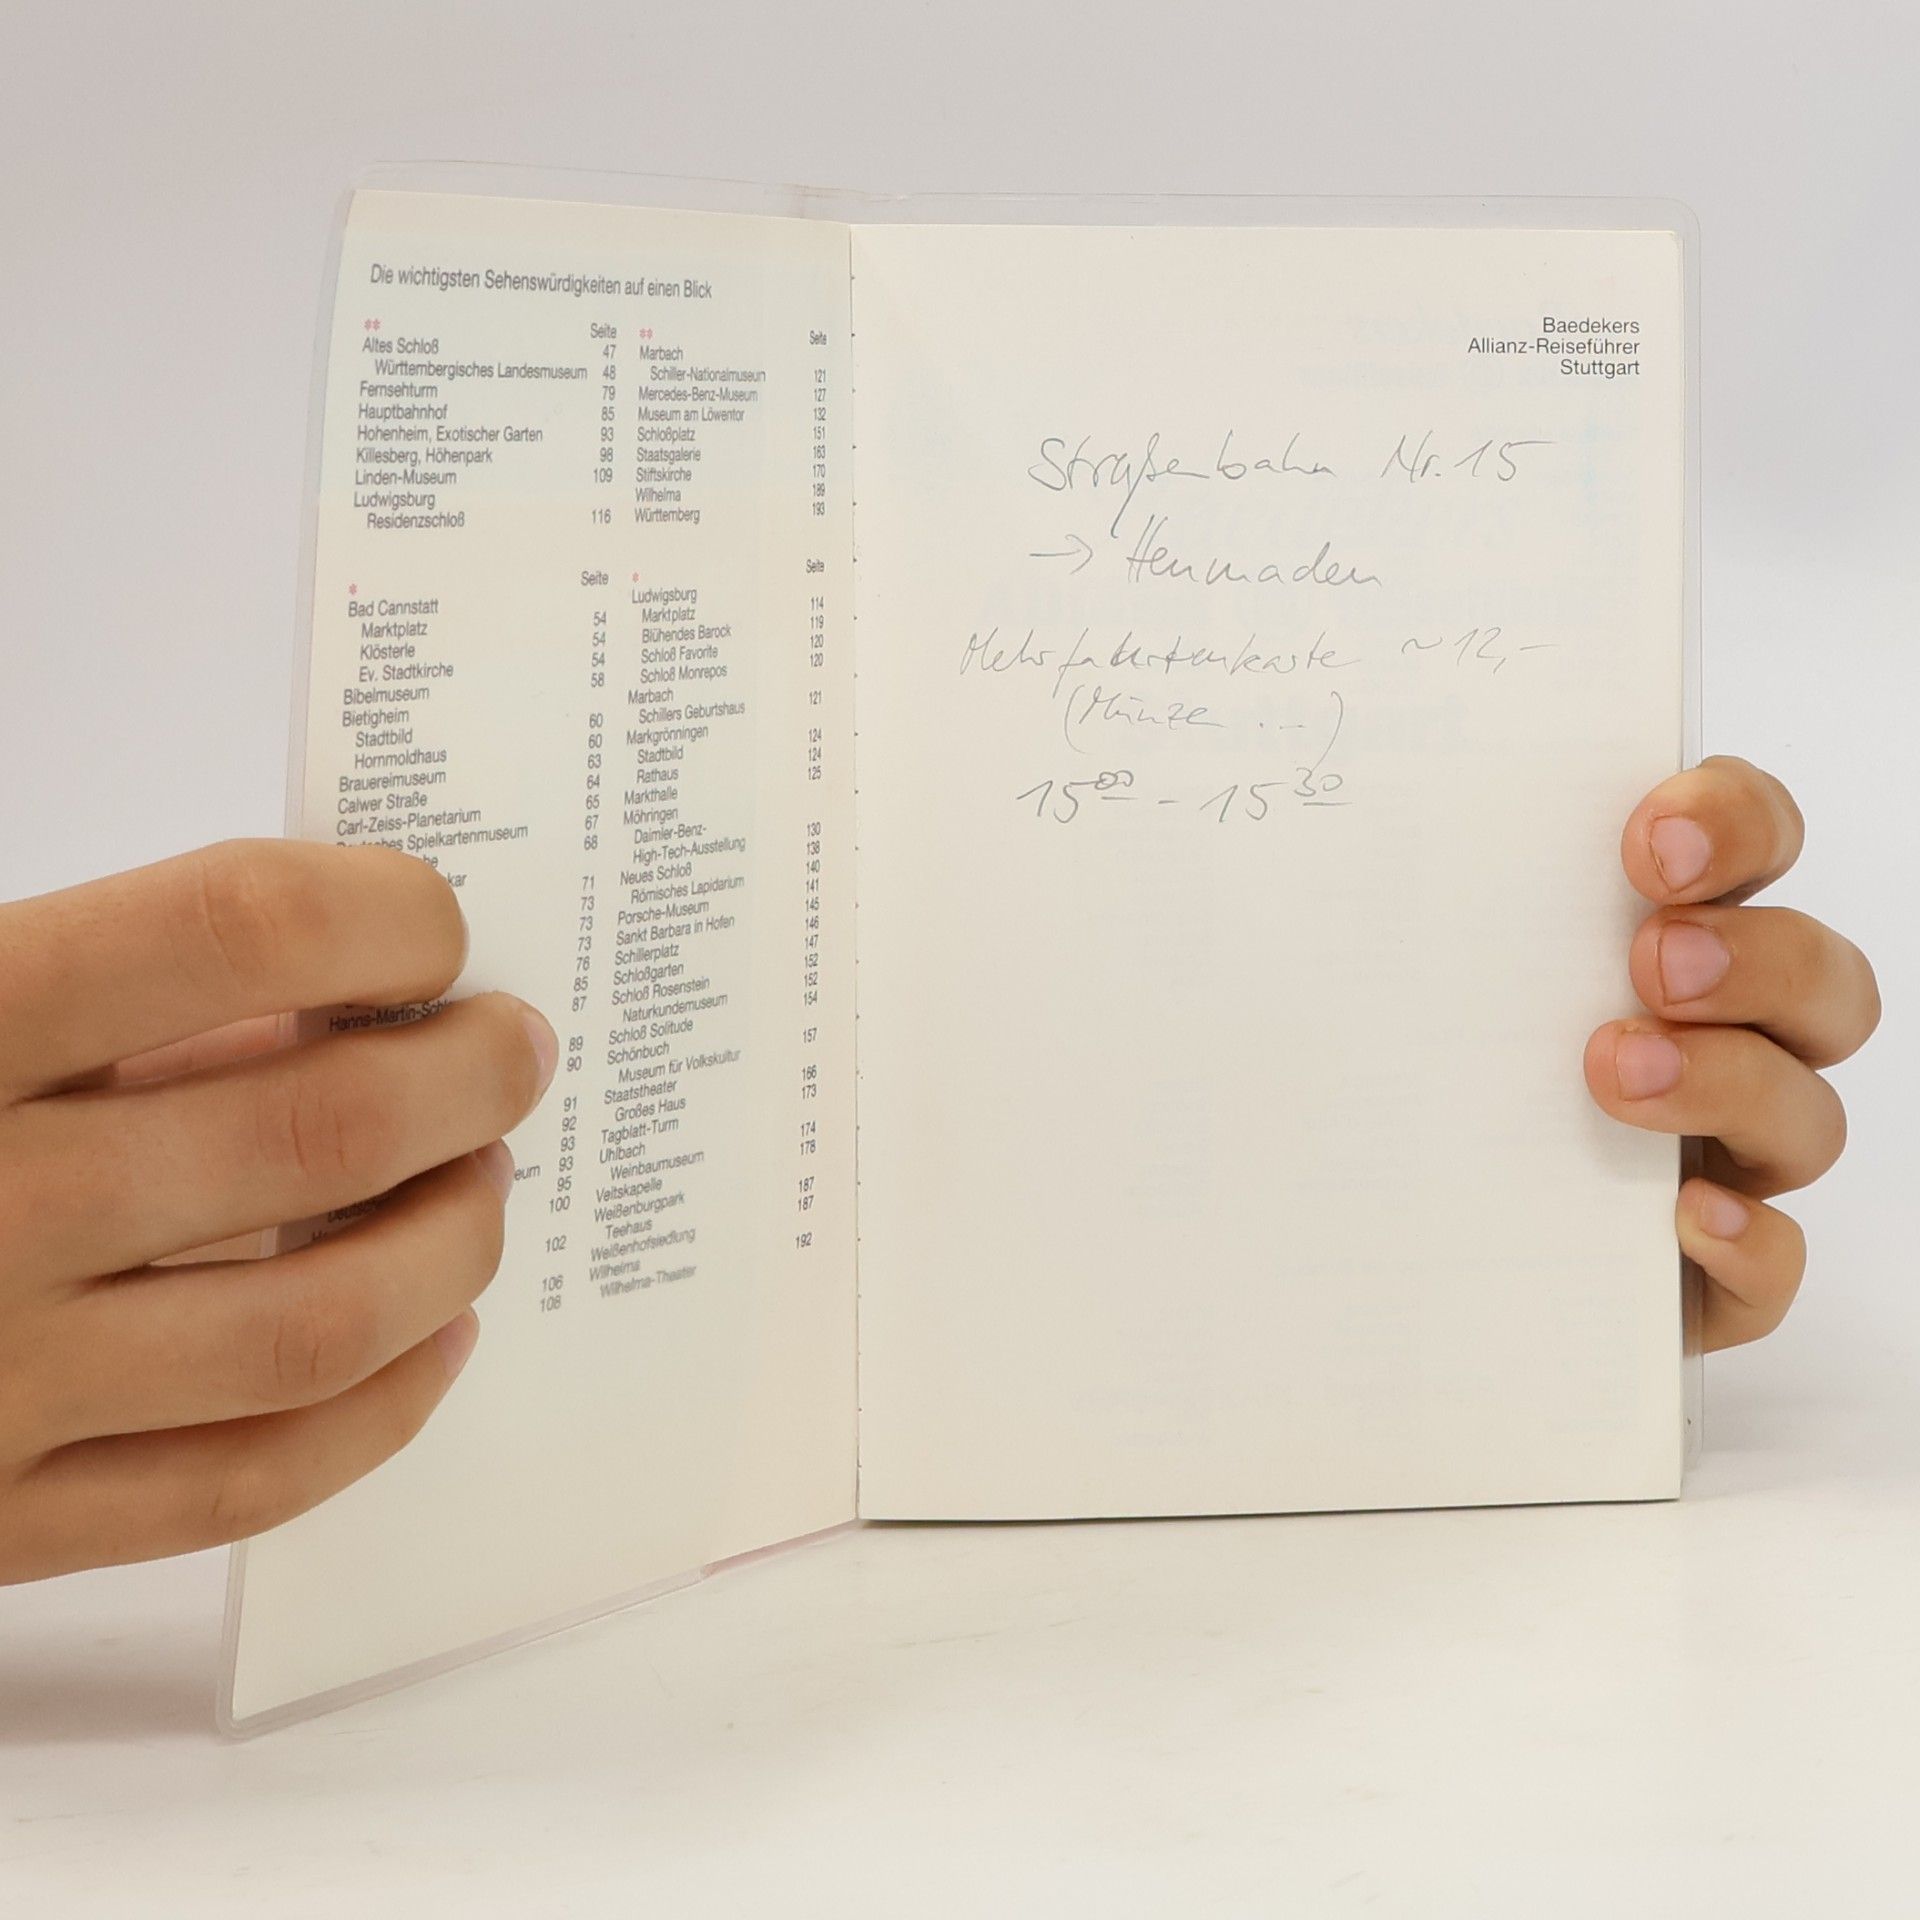 Die wichtigsten Sehenswürdigkeiten auf einen Blick
** Seite
Altes Schloß 47
Württembergisches Landesmuseum 48
Fernsehturm 79
Hauptbahnhof 85
Hohenheim, Exotischer Garten 93
Killesberg, Höhenpark 98
Linden-Museum 109
Ludwigsburg
Residenzschloß 116
** Seite
Marbach
Schiller-Nationalmuseum 121
Mercedes-Benz-Museum 127
Museum am Löwentor 132
Schloßplatz 151
Staatsgalerie 163
Stiftskirche 170
Wilhelma 189
Württemberg 193
* Seite
Bad Cannstatt
Marktplatz 54
Klösterle 54
Ev. Stadtkirche 54
Bibelmuseum 58
Bietigheim
Stadtbild 60
Hornmoldhaus 60
Brauereimuseum 63
Calwer Straße 64
Carl-Zeiss-Planetarium 65
Deutsches Spielkartenmuseum 67
68
71
73
73
73
76
85
Hanns-Martin-Schl 87
89
90
91
92
93
eum 93
95
100
102
106
108
* Seite
Ludwigsburg
Marktplatz 114
Blühendes Barock 119
Schloß Favorite 120
Schloß Monrepos 120
Marbach
Schillers Geburtshaus 121
Markgrönningen
Stadtbild 124
Rathaus 124
Markthalle 125
Möhringen
Daimler-Benz-
High-Tech-Ausstellung 130
Neues Schloß 138
Römisches Lapidarium 140
Porsche-Museum 141
Sankt Barbara in Hofen 145
Schillerplatz 146
Schloßgarten 147
Schloß Rosenstein 152
Naturkundemuseum 152
Schloß Solitude 154
Schönbuch
Museum für Volkskultur 157
Staatstheater
Großes Haus 166
Tagblatt-Turm 173
Uhlbach
Weinbaumuseum 174
Veitskapelle 178
Weißenburgpark
Teehaus 187
Weißenhofsiedlung 187
Wilhelma
Wilhelma-Theater 192
Baedekers
Allianz-Reiseführer
Stuttgart
Straßenbahn Nr. 15
→ Heumaden
Mehrfahrtenkarte ~12,-
(Münze ...)
15⁰⁰ - 15³⁰